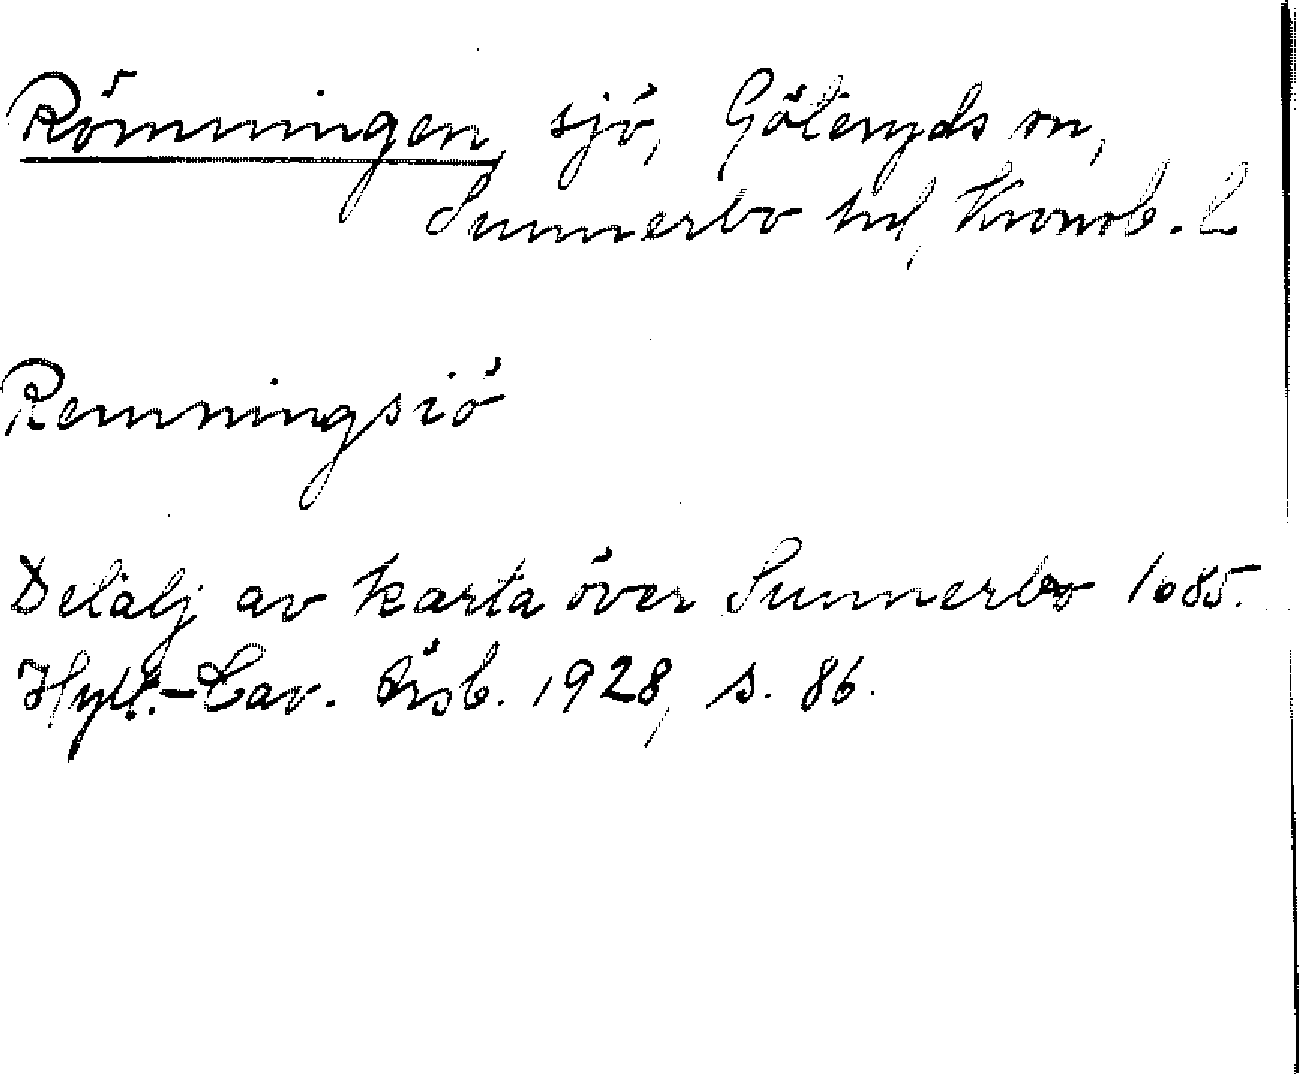 Römningen, sjö, Göteryds sn,
Sunnerbo hd, Kronob. l
Remningsiö
Detalj av karta över Sunnerbo 1685.
Hylt.-Cav. Årsb. 1928, s. 86.